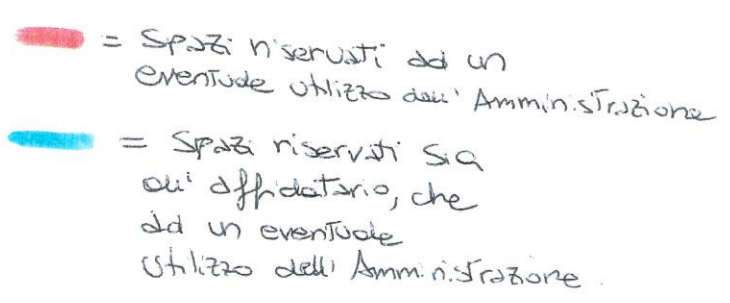 = Spazi riservati ad un
eventuale utilizzo dell'Amministrazione
= Spazi riservati sia
all'affidatario, che
ad un eventuale
utilizzo dell'Amministrazione.